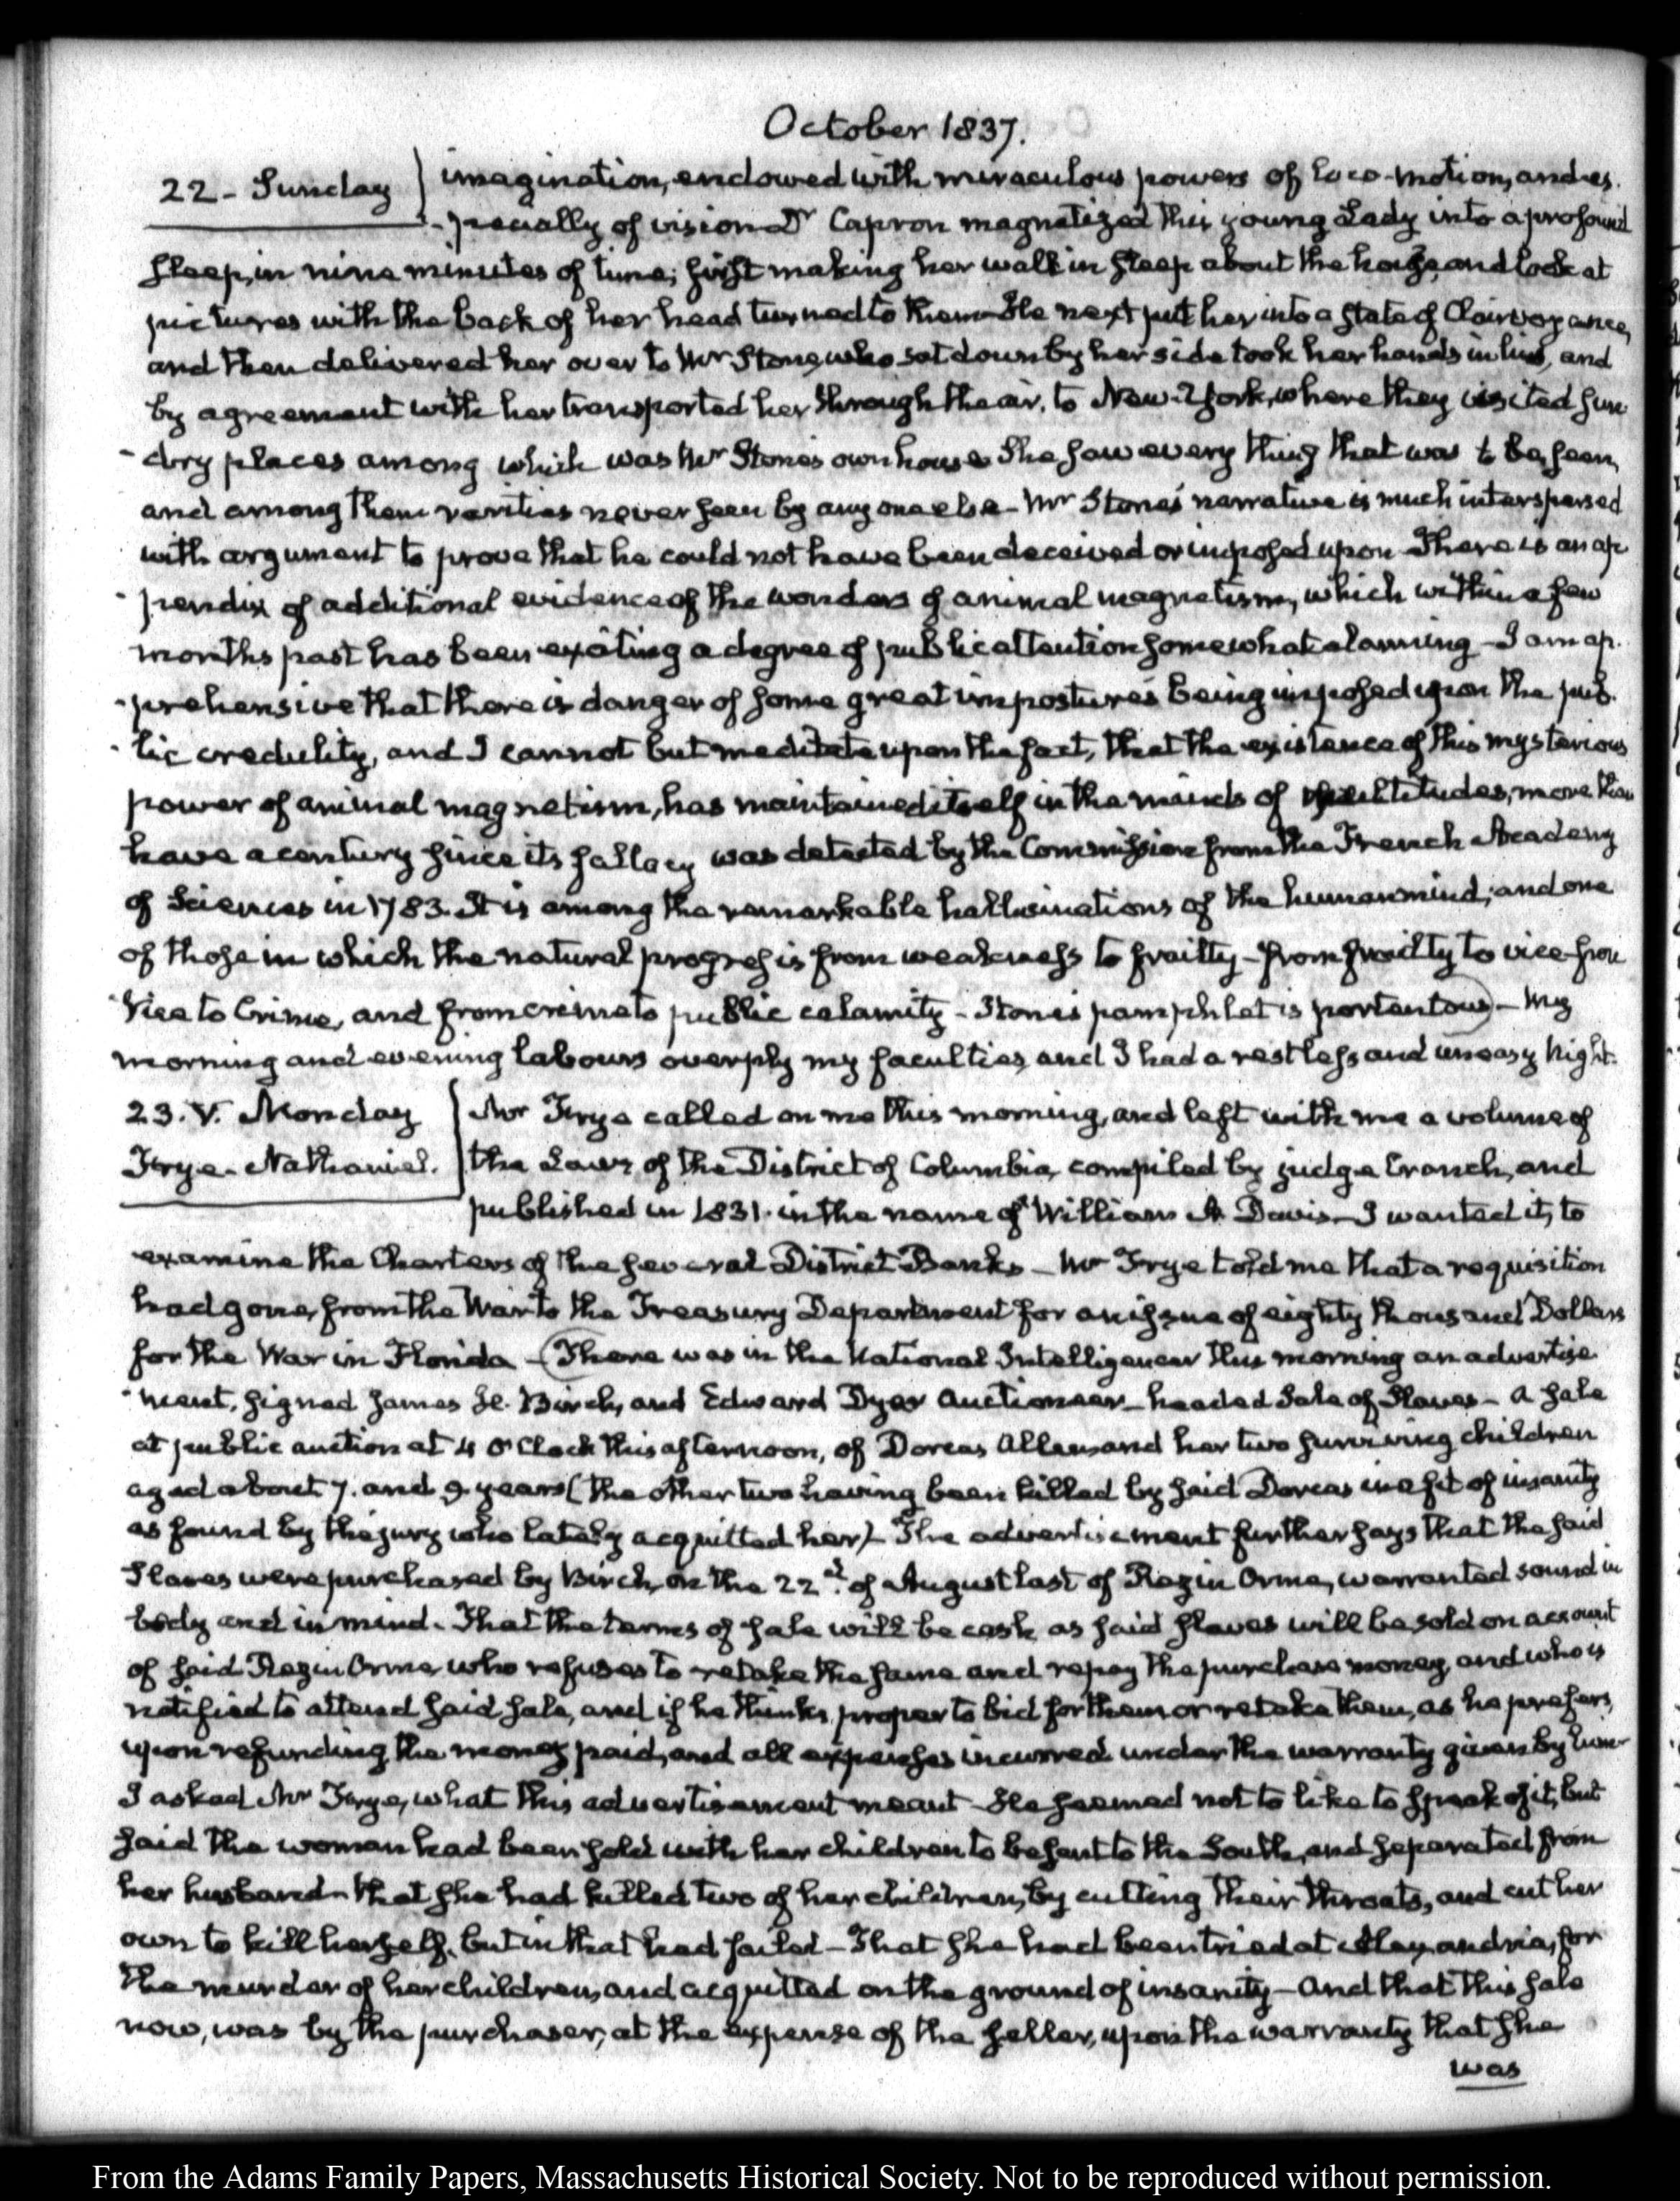 October 1837.
22 - Sunday
imagination, endowed with miraculous powers of loco-motion, and es.
-pecially of vision - Dr Capron magnetized this young Lady into a profound
sleep, in nine minutes of time; first making her walk in sleep about the house, and look at
pictures with the back of her head turned to them - He next put her into a state of Clairvoyance,
and then delivered her over to Mr Stone, who sat down by her side took her hands in his, and
by agreement with her transported her through the air, to New-York, where they visited sun
-dry places among which was Mr Stone's own house She saw every thing that was to be seen,
and among them rarities never seen by any one else - Mr Stone's narrative is much interspersed
with argument to prove that he could not have been deceived or imposed upon - There is an ap
-pendix of additional evidence of the wonders of animal magnetism, which within a few
months past has been exciting a degree of public attention somewhat alarming - I am ap.
-prehensive that there is danger of some great impostures being imposed upon the pub.
-lic credulity, and I cannot but meditate upon the fact, that the existence of this mysterious
power of animal magnetism, has maintained itself in the minds of multitudes, more than
have a century since its fallacy was detected by the Commission from the French Academy
of Sciences in 1783. It is among the remarkable hallucinations of the human mind; and one
of those in which the natural progress is from weakness to frailty - from frailty to vice - from
vice to Crime, and from crime to public calamity - Stone's pamphlet is portentous) - My
morning and evening labours overply my faculties, and I had a restless and uneasy night.
23. V. Monday
Frye - Nathaniel.
Mr Frye called on me this morning, and left with me a volume of
the Laws of the District of Columbia, compiled by judge Cranch, and
published in 1831. in the name of William A. Davis - I wanted it, to
examine the Charters of the several District Banks - Mr Frye told me that a requisition
had gone, from the War to the Treasury Department for an issue of eighty thousand Dollars
for the War in Florida - (There was in the National Intelligencer this morning an advertise
-ment, signed James H. Birch, and Edward Dyer Auctioneer - headed Sale of Slaves - A sale
at public auction at 4 O'Clock this afternoon, of Dorcas Allen and her two surviving children
aged about 7. and 9 years (the other two having been killed by said Dorcas in a fit of insanity
as found by the jury who lately acquitted her) - The advertisement further says that the said
Slaves were purchased by Birch, on the 22d. of August last of Rezin Orme, warranted sound in
body and in mind. That the terms of sale will be cash as said slaves will be sold on account
of said Rezin Orme, who refuses to retake the same and repay the purchase money, and who is
notified to attend said sale, and if he thinks proper to bid for them or retake them, as he prefers,
upon refunding the money paid, and all expenses incurred under the warranty given by him -
I asked Mr Frye, what this advertisement meant - He seemed not to like to speak of it, but
said the woman had been sold with her children to be sent to the South, and separated from
her husband - that she had killed two of her children, by cutting their throats, and cut her
own to kill herself, but in that had failed - That she had been tried at Alexandria, for
the murder of her children, and acquitted on the ground of insanity - And that this sale
now, was by the purchaser, at the expense of the seller, upon the warranty that she
was
From the Adams Family Papers, Massachusetts Historical Society. Not to be reproduced without permission.